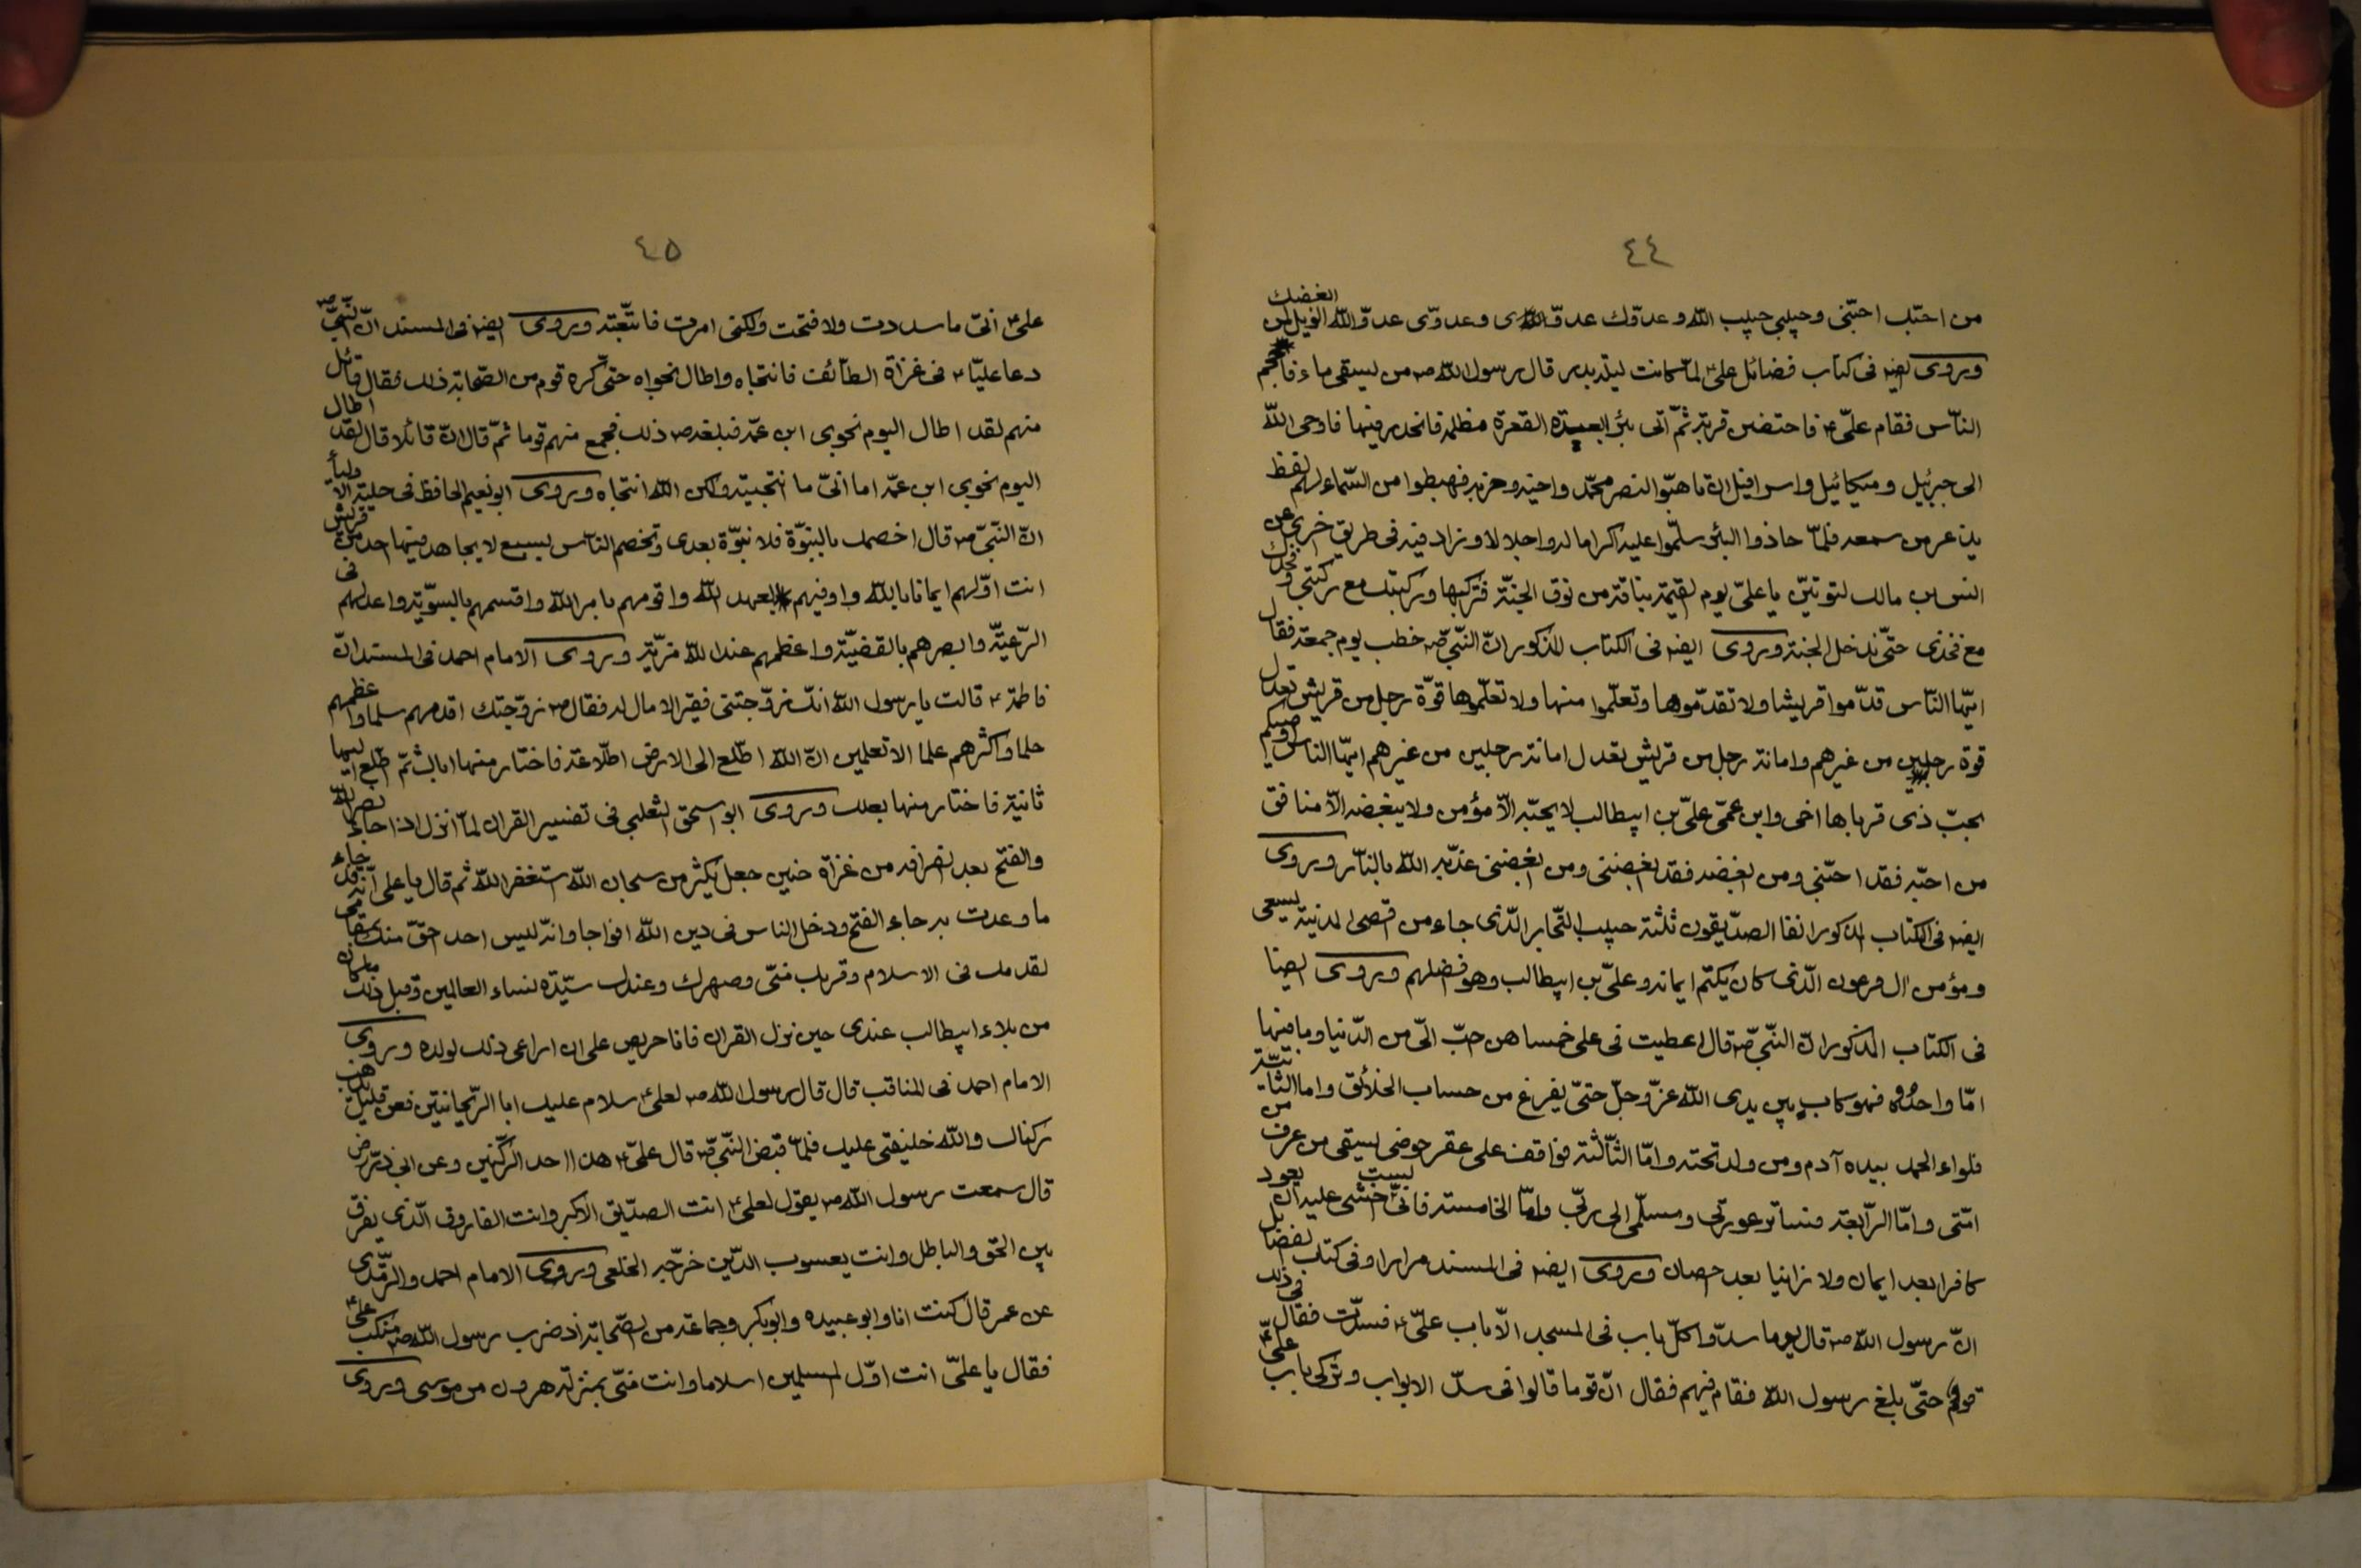 ٤٤
من احبّك احبّنى وحبيبى حبيب اللّه وعدوّك عدوّى وعدوّى عدوّ اللّه الويل لمن ابغضك
وروى ايضه فى كتاب فضائل علىّ ع لمّا كانت ليلة بدر قال رسول اللّه ص من يسقى ماء فاحجم
النّاس فقام علىّ ع فاحتضن قربة ثمّ اتى بئر ابعيدة القعرة مظلمة فانحدر فيها فاوحى اللّه
الى جبرئيل وميكائيل واسرافيل ان تاهبّوا لنصر محمّد واخيه وحزبه فهبطوا من السّماء لهم لغط
يذعر من سمعه فلمّا حاذوا البئر سلّموا عليه اكراما له واجلالا وزاد فيه فى طريق اخرى عن
انس بن مالك لتوتينّ يا علىّ يوم القيمة بناقة من نوق الجنّة فتركبها وركبتك مع ركبتى وفخذك
مع فخذى حتّى ندخل الجنة وروى ايضه فى الكتاب المذكور انّ النّبىّ ص خطب يوم جمعة فقال
ايّها النّاس قدّموا قريشا ولا تقدّموها وتعلّموا منها ولا تعلّموها قوّة رجل من قريش تعدل
قوة رجلين من غيرهم وامانة رجل من قريش تعدل امانة رجلين من غيرهم ايّها الناس اوصيكم
بحبّ ذى قرباها اخى وابن عمّى علىّ بن ابيطالب لا يحبّه الّا مؤمن ولا يبغضه الّا منافق
من احبّه فقد احبّنى ومن ابغضه فقد ابغضنى ومن ابغضنى عذّبه اللّه بالنّار وروى
ايضه فى الكتاب المذكور انفا الصدّيقون ثلثة حبيب النّجار الّذى جاء من اقصى المدنية يسعى
ومؤمن ال فرعون الّذى كان يكتم ايمانه وعلىّ بن ابيطالب وهو افضلهم وروى ايضا
فى الكتاب المذكور انّ النّبىّ ص قال اعطيت فى على خمسا هن احبّ الىّ من الدّنيا وما فيها
امّا واحدة فهو كاب بين يدى اللّه عزّ وجلّ حتّى يفرغ من حساب الخلائق واما الثّانية
فلواء الحمد بيده آدم ومن ولد تحته وامّا الثّالثة فواقف على عقر حوضى يسقى من عرف من
امّتى وامّا الرّابعة فساتر عورتى ومسلّمى الى ربّى وامّا الخامسة فانّى لست اخشى عليه ان يعود
كافرا بعد ايمان ولا زانيا بعد احصان وروى ايضه فى المسند مرارا وفى كتاب الفضايل
انّ رسول اللّه ص قال يوما سدّوا كلّ باب فى المسجد الّا باب علىّ ع فسدّت فقال فى ذلك
قوم حتّى بلغ رسول اللّه فقام فيهم فقال انّ قوما قالوا فى سدّ الابواب وتركى باب علىّ ع
٤٥
علىّ ع انّى ما سددت ولا فتحت ولكنى امرت فاتّبعته وروى ايضه فى المسند انّ النّبىّ ص
دعا عليّا ع فى غزاة الطّائف فانتجاه واطال نجواه حتّى كره قوم من الصّحابة ذلك فقال قائل
منهم لقد اطال اليوم نجوى ابن عمّه فبلغه ص ذلك فجمع منهم قوما ثمّ قال انّ قائلا قال لقد اطال
اليوم نجوى ابن عمّه اما انّى ما انتجيته ولكن اللّه انتجاه وروى ابو نعيم الحافظ فى حلية الاولياء
انّ النّبىّ ص قال اخصمك بالنبوّة فلا نبوّة بعدى وتخصم النّاس بسبع لا يجاهد فيها احد من قريش
انت اوّلهم ايمانا باللّه واوفيهم بعهد اللّه واقومهم بامر اللّه واقسمهم بالسويّة واعدلهم فى
الرّعيّة وابصرهم بالقضيّة واعظمهم عند اللّه مزيّة وروى الامام احمد فى المسند انّ
فاطمة ع قالت يا رسول اللّه انّك زوّجتنى فقيرا لا مال له فقال ص زوّجتك اقدمهم سلما واعظمهم
حلما واكثرهم علما الا تعلمين انّ اللّه اطّلع الى الارض اطلّاعة فاختار منها اباك ثمّ اطّلع اليها
ثانية فاختار منها بعلك وروى ابو اسحق الثعلبى فى تفسير القران لمّا انزل اذا جاء نصر اللّه
والفتح بعد انصرافه من غزاة حنين جعل يكثر من سبحان اللّه استغفر اللّه ثم قال يا على انّه قد جاء
ما وعدت به جاء الفتح ودخل الناس فى دين اللّه افواجا وانّه ليس احد احقّ منك بمقامى
لقدمك فى الاسلام وقربك منّى وصهرك وعندك سيّدة نساء العالمين وقبل ذلك ما كان
من بلاء ابيطالب عندى حين نزل القران فانا حريص على ان اراعى ذلك لولده وروى
الامام احمد فى المناقب قال قال رسول اللّه ص لعلى ع سلام عليك ابا الرّيحانتين فعن قليل يذهب
ركناك واللّه خليفتى عليك فلمّا قبض النّبىّ ص قال علىّ ع هذا احد الرّكنين وعن ابى ذرّ رض
قال سمعت رسول اللّه ص يقول لعلى ع انت الصدّيق الاكبر وانت الفاروق الّذى يفرق
بين الحق والباطل وانت يعسوب الدّين خرّجه الخلعى وروى الامام احمد والترمذى
عن عمر قال كنت انا وابو عبيده وابو بكر وجماعة من الصّحابة اذ ضرب رسول اللّه ص منكب علىّ ع
فقال يا علىّ انت اوّل المسلمين اسلاما وانت منّى بمنزلة هرون من موسى وروى